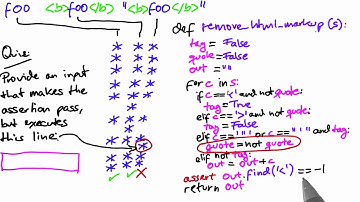 foo <b>foo</b> "<b>foo</b>"
Quiz:
Provide an input
that makes the
assertion pass,
but executes
this line:
def remove_html_markup (s):
tag = False
quote = False
out = ""
for c in s:
if c == '<' and not quote:
tag = True
elif c == '>' and not quote:
tag = False
elif c == '"' or c == "'" and tag:
quote = not quote
elif not tag:
out = out + c
assert out.find('<') == -1
return out